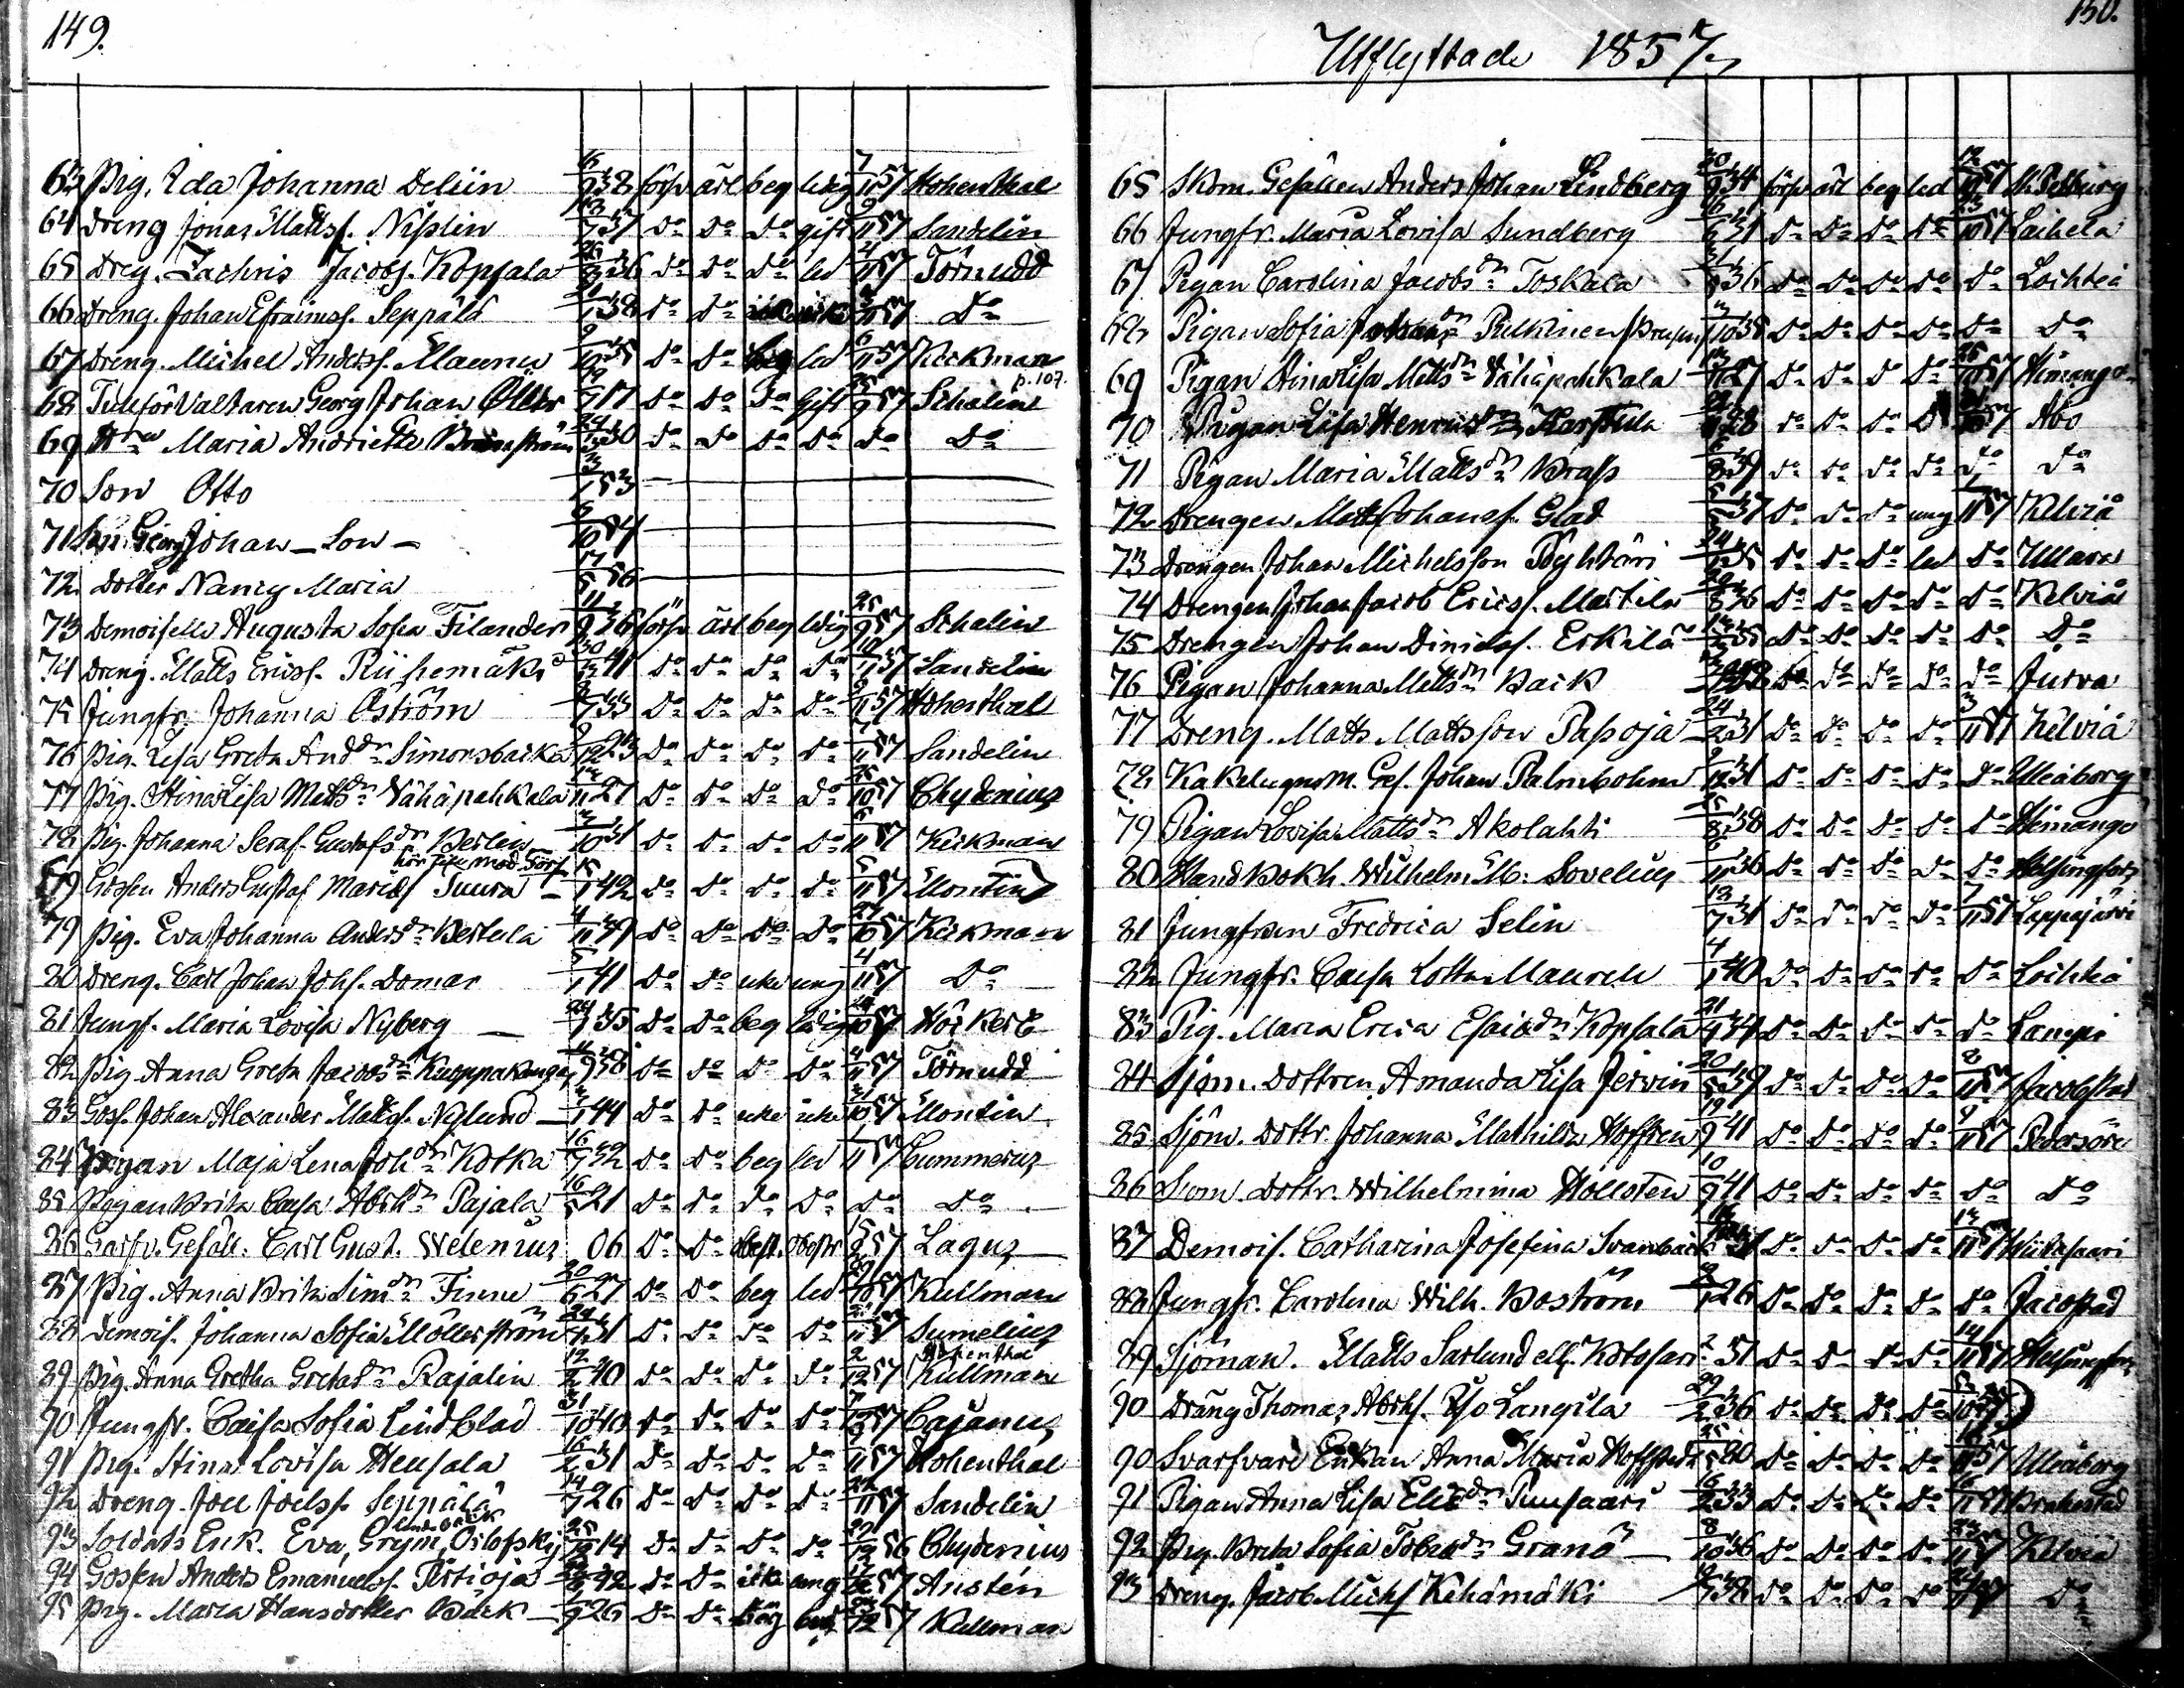 149.
63 Pig. Ida Johanna Deliin 6/9 38 förp ärl beg ledig 7/11 57 Hohenthal
64 Dreng Jonas Mattss. Nisslin 13/7 37 do do do gift 9/11 57 Sandelin
65 Dreg. Zachris Jacobs. Kopsala 26/8 36 do do do led 4/11 57 Törnudd
66 Dreng. Johan Efraimss. Seppälä 1 38 do do 11 57 do
67 Dreng. Michel Anderss. Maunu 9 35 do do beg led 6/11 57 Keckman
p. 107.
68 Tullförvaltaren Georg Johan 17 do do do Gift 9 57 Schalin
69 H Maria Andriette 30 do do do do do do
70 Son Otto 1 53
71 Georg Johan - Son - 6/10 54
72 Dotter Nancy Maria 17/5 56
73 Demoiselle Augusta Sofia Filander 11/9 36 förp ärl beg ledig 25/9 57 Schalin
74 Dreng. Matts Ericss. 30/12 41 do do do do 10/11 57 Sandelin
75 Jungfr. Johanna Öström 7 33 do do do do 9/11 57 Hohenthal
76 Pig. Lisa Greta And:dr Simonsbacka 9/12 23 do do do do 7/11 57 Sandelin
77 Pig. Stina Lisa Mattsdr Vähäpahkala 11 27 do do do do 10 57 Chydenius
78 Pig. Johanna Seraf. Gustafsdr Berlin 10 31 do do do do 6/11 57 Keckman
79 Gossen Anders Gustaf Mariæs Suura 15/1 42 do do do do 5/11 57 Montin
79 Pig. Eva Johanna Andersdr Bertula 4/11 39 do do do do 27/10 57 Keckman
80 Dreng. Carl Johan Johs. Domar 5/1 41 do do icke ung 4/11 57 do
81 Jungf. Maria Lovisa Nyberg 24/7 35 do do beg ledig 10 57 Höckert
82 Pig. Anna Greta Jacobsdr Kuoppakangas 9 38 do do do do 4/11 57 Törnudd
83 Goss. Johan Alexander Mattss. Nylund 1 44 do do icke icke 31/10 57 Montin
84 Pigan Maja Lena Johdr Kotka 16/7 32 do do beg led 11 57 Cummerus
85 Pigan Brita Caisa Abrhdr Pajala 16/5 21 do do do do do do
86 Garfv. Gesäll. Carl Gust. Welenius 06 do do 57 Lagus
87 Pig. Anna Brita Simdr Finne 20/6 27 do do beg led 29/10 57 Kullman
88 Demois. Johanna Sofia Möllerström 24 31 do do do do 11 57 Sumelius
Hohenthal
89 Pig. Anna Gretha Gretasdr Rajalin 12/2 40 do do do do 2/12 57 Kullman
90 Jungfr. Caisa Sofia Lindblad 31/10 40 do do do do 12 57 Cajanus
91 Pig. Stina Lovisa Heusala 16/2 31 do do do do 11 57 Hohenthal
92 Dreng. Joel Joelss. Seppälä 14/7 26 do do do do 11 57 Sandelin
93 Soldats Enk. Eva, Gryn, Oslofskij 25/12 14 do do do do 12 56 Chydenius
94 Gossen Anders Emanuelss. Pertiöja 42 do do icke ung 57 Austén
95 Pig. Maria Hansdotter Back 9 26 do do beg led 12 57 Kullman
150.
Utflyttade 1857
65 Skom. Gesällen Anders Johan Lindberg 30/9 34 förp ärl beg led 12/10 57 St. Petburg
66 Jungfr. Maria Lovisa Sundberg 16/6 31 do do do do 23/10 57 Laihela
67 Pigan Carolina Jacobsdr Toskala 36 do do do do do Lochteå
68 Pigan Sofia Johansdr Pulkinen 10 38 do do do do do do
69 Pigan Stina Lisa Mattsdr Vähäpahkala 11 27 do do do do 10 57 Himango
70 Pigan Lisa Henricsdr Karstula 28 do do do do 57 Åbo
71 Pigan Maria Mattsdr Brass 6/8 39 do do do do do do
72 Drengen Matts Johanss. Glad 37 do do do ung 11 57 Kelviå
73 Drengen Johan Michelsson Pöyhtäri 24 35 do do do led do Ullava
74 Drengen Johan Jacob Ericss. Martila 8 36 do do do do do Kelviå
75 Drengen Johan Dinidas. Erkilä 35 do do do do do do
76 Pigan Johanna Mattsdr Back do do do do do Jurva
77 Dreng. Matts Mattsson Passoja 24/2 31 do do do do 3/11 57 Kelviå
78 Kakelugnsm. Ges. Johan Palmbohm 9/12 31 do do do do do Uleåborg
79 Pigan Lovisa Mattsdr Akolahti 8 38 do do do do do Himango
80 Hand Bokh. Wilhelm M: Sovelius 6/11 36 do do do do do Helsingfors
81 Jungfrun Fredrica Selin 13/7 31 do do do do 7/11 57 Lappajärvi
82 Jungfr. Caisa Lotta Maurell 4/1 40 do do do do do Lochteå
83 Pig. Maria Erica Esaiædr Kopsala 21 do do do do do Lampi
84 Sjöm. Dottren Amanda Lisa Jervin 20/5 39 do do do do 8/11 57 Jacobstad
85 Sjöm. Dottr. Johanna Mathilda Hoffrén 19/9 41 do do do do 9/11 57 Pedersöre
86 Sjöm. Dottr. Wilhelmina Hollsten 10/9 41 do do do do do do
87 Demois. Catharina Josefina Svanbäck 31 do do do do 13/11 57 Wiitasaari
88 Jungfr. Carolina Wilh. Boström 1 26 do do do do do Jacobstad
89 Sjöman. Matts Sarlund ell. Kotosari 31 do do do do 14/11 57 Helsingfors
90 Dräng Thomas Abrhs. Yo Langila 29/2 36 do do do do 10 57
90 Svarfvare Enkan Anna Maria 20 do do do do 11 57 Uleåborg
91 Pigan Anna Lisa Eliædr Puusaari 16/2 33 do do do do 16/11 57 Brahestad
92 Pig. Brita Sofia Tobiædr Granö 8/10 36 do do do do 23/11 57 Kelviå
93 Dreng. Jacob Michs Kehämäki 7 38 do do do do do